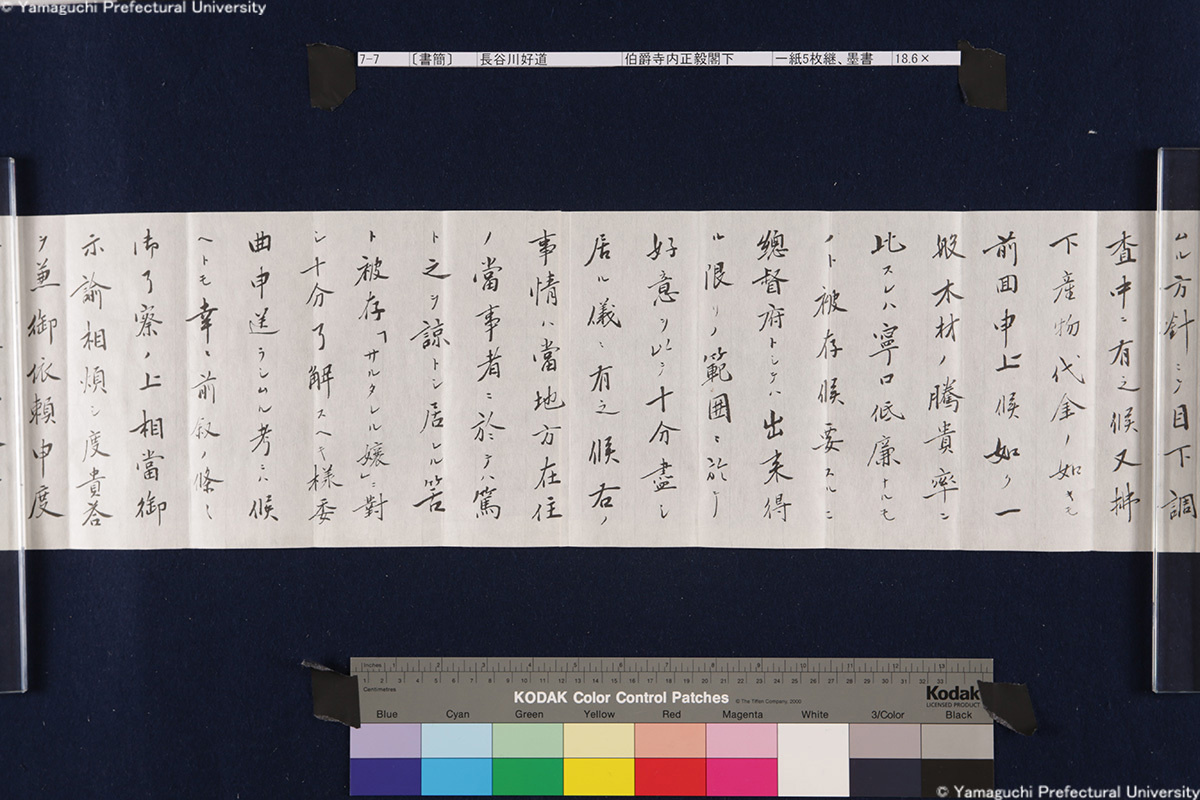 © Yamaguchi Prefectural University
7-7 〔書簡〕 長谷川好道 伯爵寺内正毅閣下 一紙5枚継、墨書 18.6×
ムル方針ニテ目下調
査中ニ有之候又拂
下産物代金ノ如キモ
前回申上候如ク一
般木材ノ騰貴率ニ
比スレハ寧ロ低廉ナルモ
ノト被存候要スルニ
總督府トシテハ出来得
ル限リノ範囲ニ於テ
好意ヲ以テ十分盡シ
居ル儀ニ有之候右ノ
事情ハ當地方在住
ノ當事者ニ於テハ篤
ト之ヲ諒トシ居レル筈
ト被存「サルタレル嬢」ニ對
シ十分了解スヘキ様委
曲申送ラシムル考ニハ候
ヘトモ幸ニ前叙ノ條々
御了察ノ上相當御
示諭相煩シ度貴答
ヲ兼御依頼申度
Inches 1 2 3 4 5 6 7 8 9 10 11 12 13
Centimetres
KODAK Color Control Patches
© The Tiffen Company, 2000
Kodak
LICENSED PRODUCT
Blue Cyan Green Yellow Red Magenta White 3/Color Black
© Yamaguchi Prefectural University